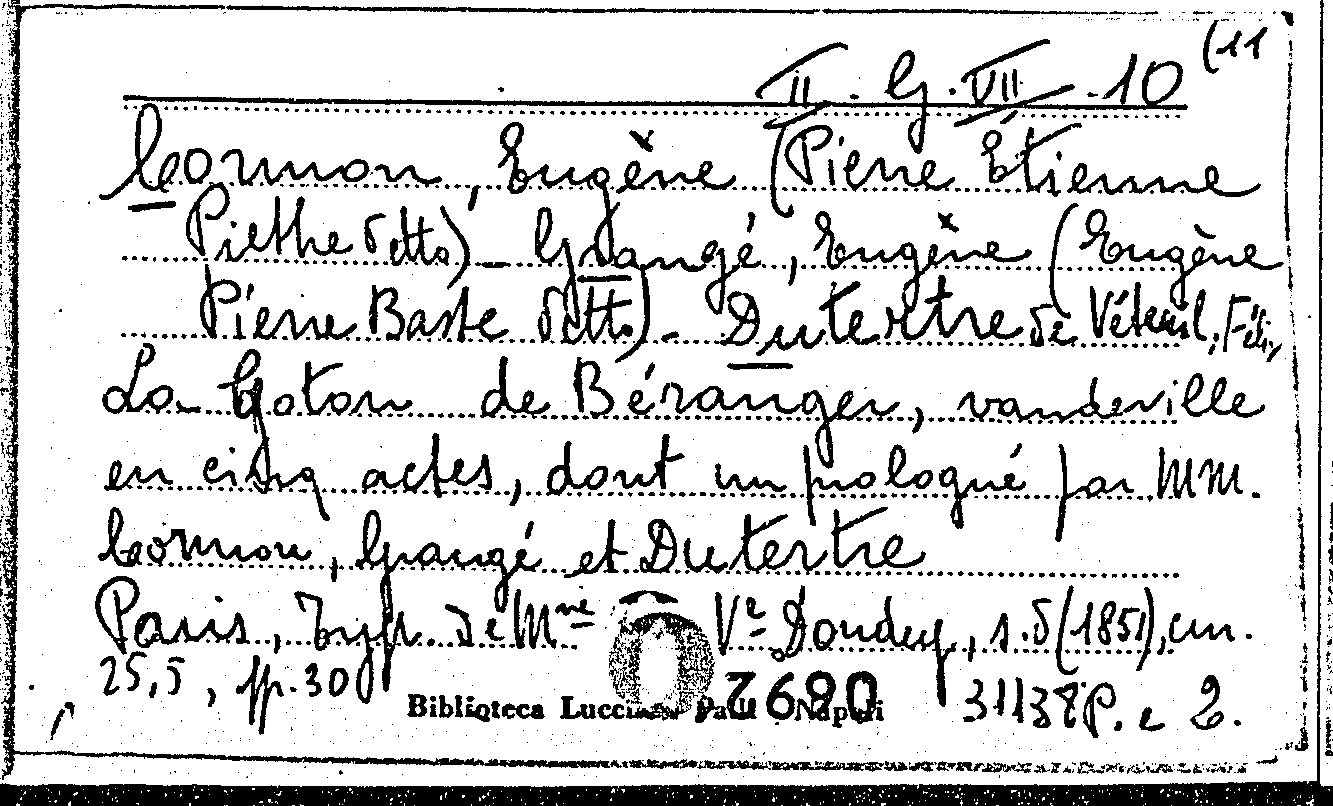 II. G. VII. 10 (11
Cormon, Eugène (Pierre Étienne
Piesthe detto) - Grangé, Eugène (Eugène
Pierre Baste detto) - Dutertre de Véteuil, Félix,
La Goton de Béranger, vaudeville
en cinq actes, dont un prologue par MM.
Cormon, Grangé et Dutertre
Paris, Typ. de Mme Ve Dondey, s.d (1851), cm.
25,5, pp. 30
Biblioteca Lucchesi Palli Napoli 31138 P. e 2.